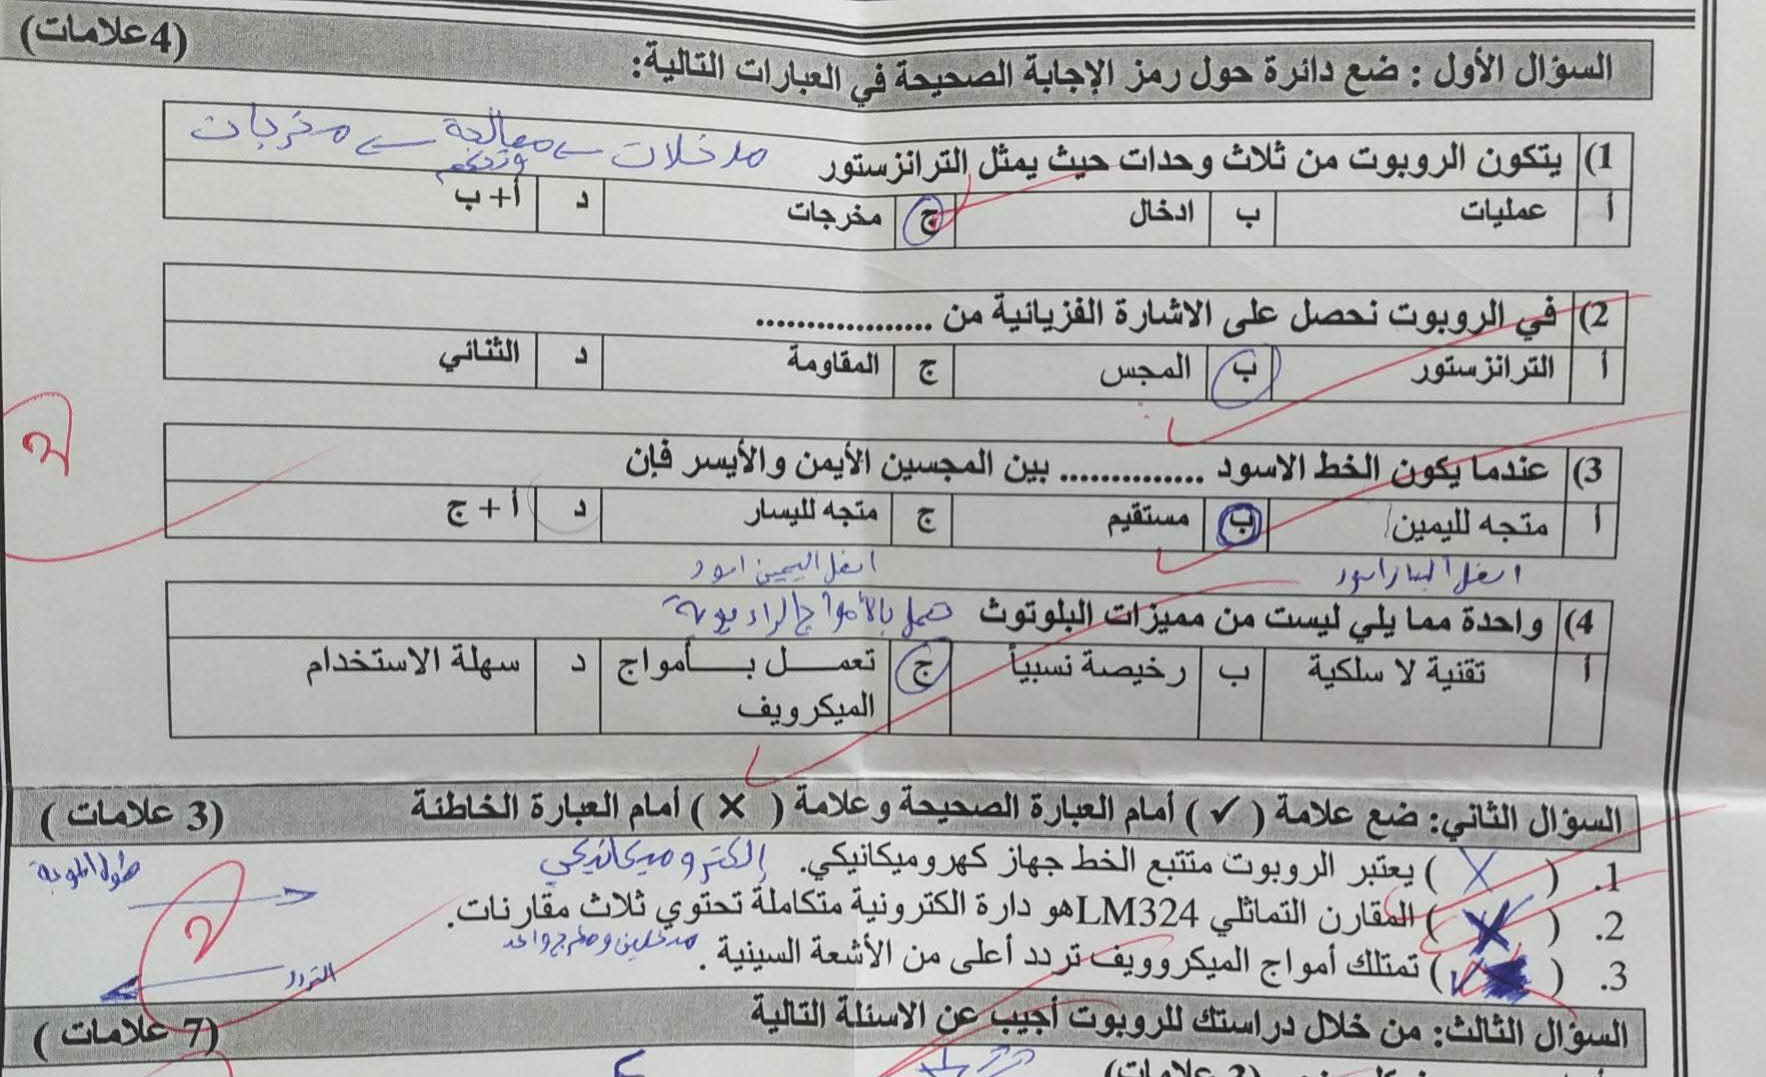 السؤال الأول : ضع دائرة حول رمز الإجابة الصحيحة في العبارات التالية: (4علامات)
مدخلات معالجة وتحكم مخرجات
1) يتكون الروبوت من ثلاث وحدات حيث يمثل الترانزستور
أ عمليات ب ادخال ج مخرجات د أ+ ب
2) في الروبوت نحصل على الاشارة الفزيائية من .................
أ الترانزستور ب المجس ج المقاومة د الثنائي
2
3) عندما يكون الخط الاسود .............. بين المجسين الأيمن والأيسر فإن
أ متجه لليمين ب مستقيم ج متجه لليسار د أ + ج
اسفل اليمين اسود
4) واحدة مما يلي ليست من مميزات البلوتوث بالأمواج الراديوية
أ تقنية لا سلكية ب رخيصة نسبياً ج تعمل بأمواج الميكرويف د سهلة الاستخدام
السؤال الثاني: ضع علامة ( ✓ ) أمام العبارة الصحيحة وعلامة ( × ) أمام العبارة الخاطئة (3 علامات )
1. ( X ) يعتبر الروبوت متتبع الخط جهاز كهروميكانيكي. إلكتروميكانيكي
طول الموجة
2. ( X ) المقارن التماثلي LM324هو دارة الكترونية متكاملة تحتوي ثلاث مقارنات.
2
مدخلين ومخرج واحد
3. ( ✓ ) تمتلك أمواج الميكروويف تردد أعلى من الأشعة السينية .
التردد
السؤال الثالث: من خلال دراستك للروبوت أجيب عن الاسئلة التالية (7 علامات )